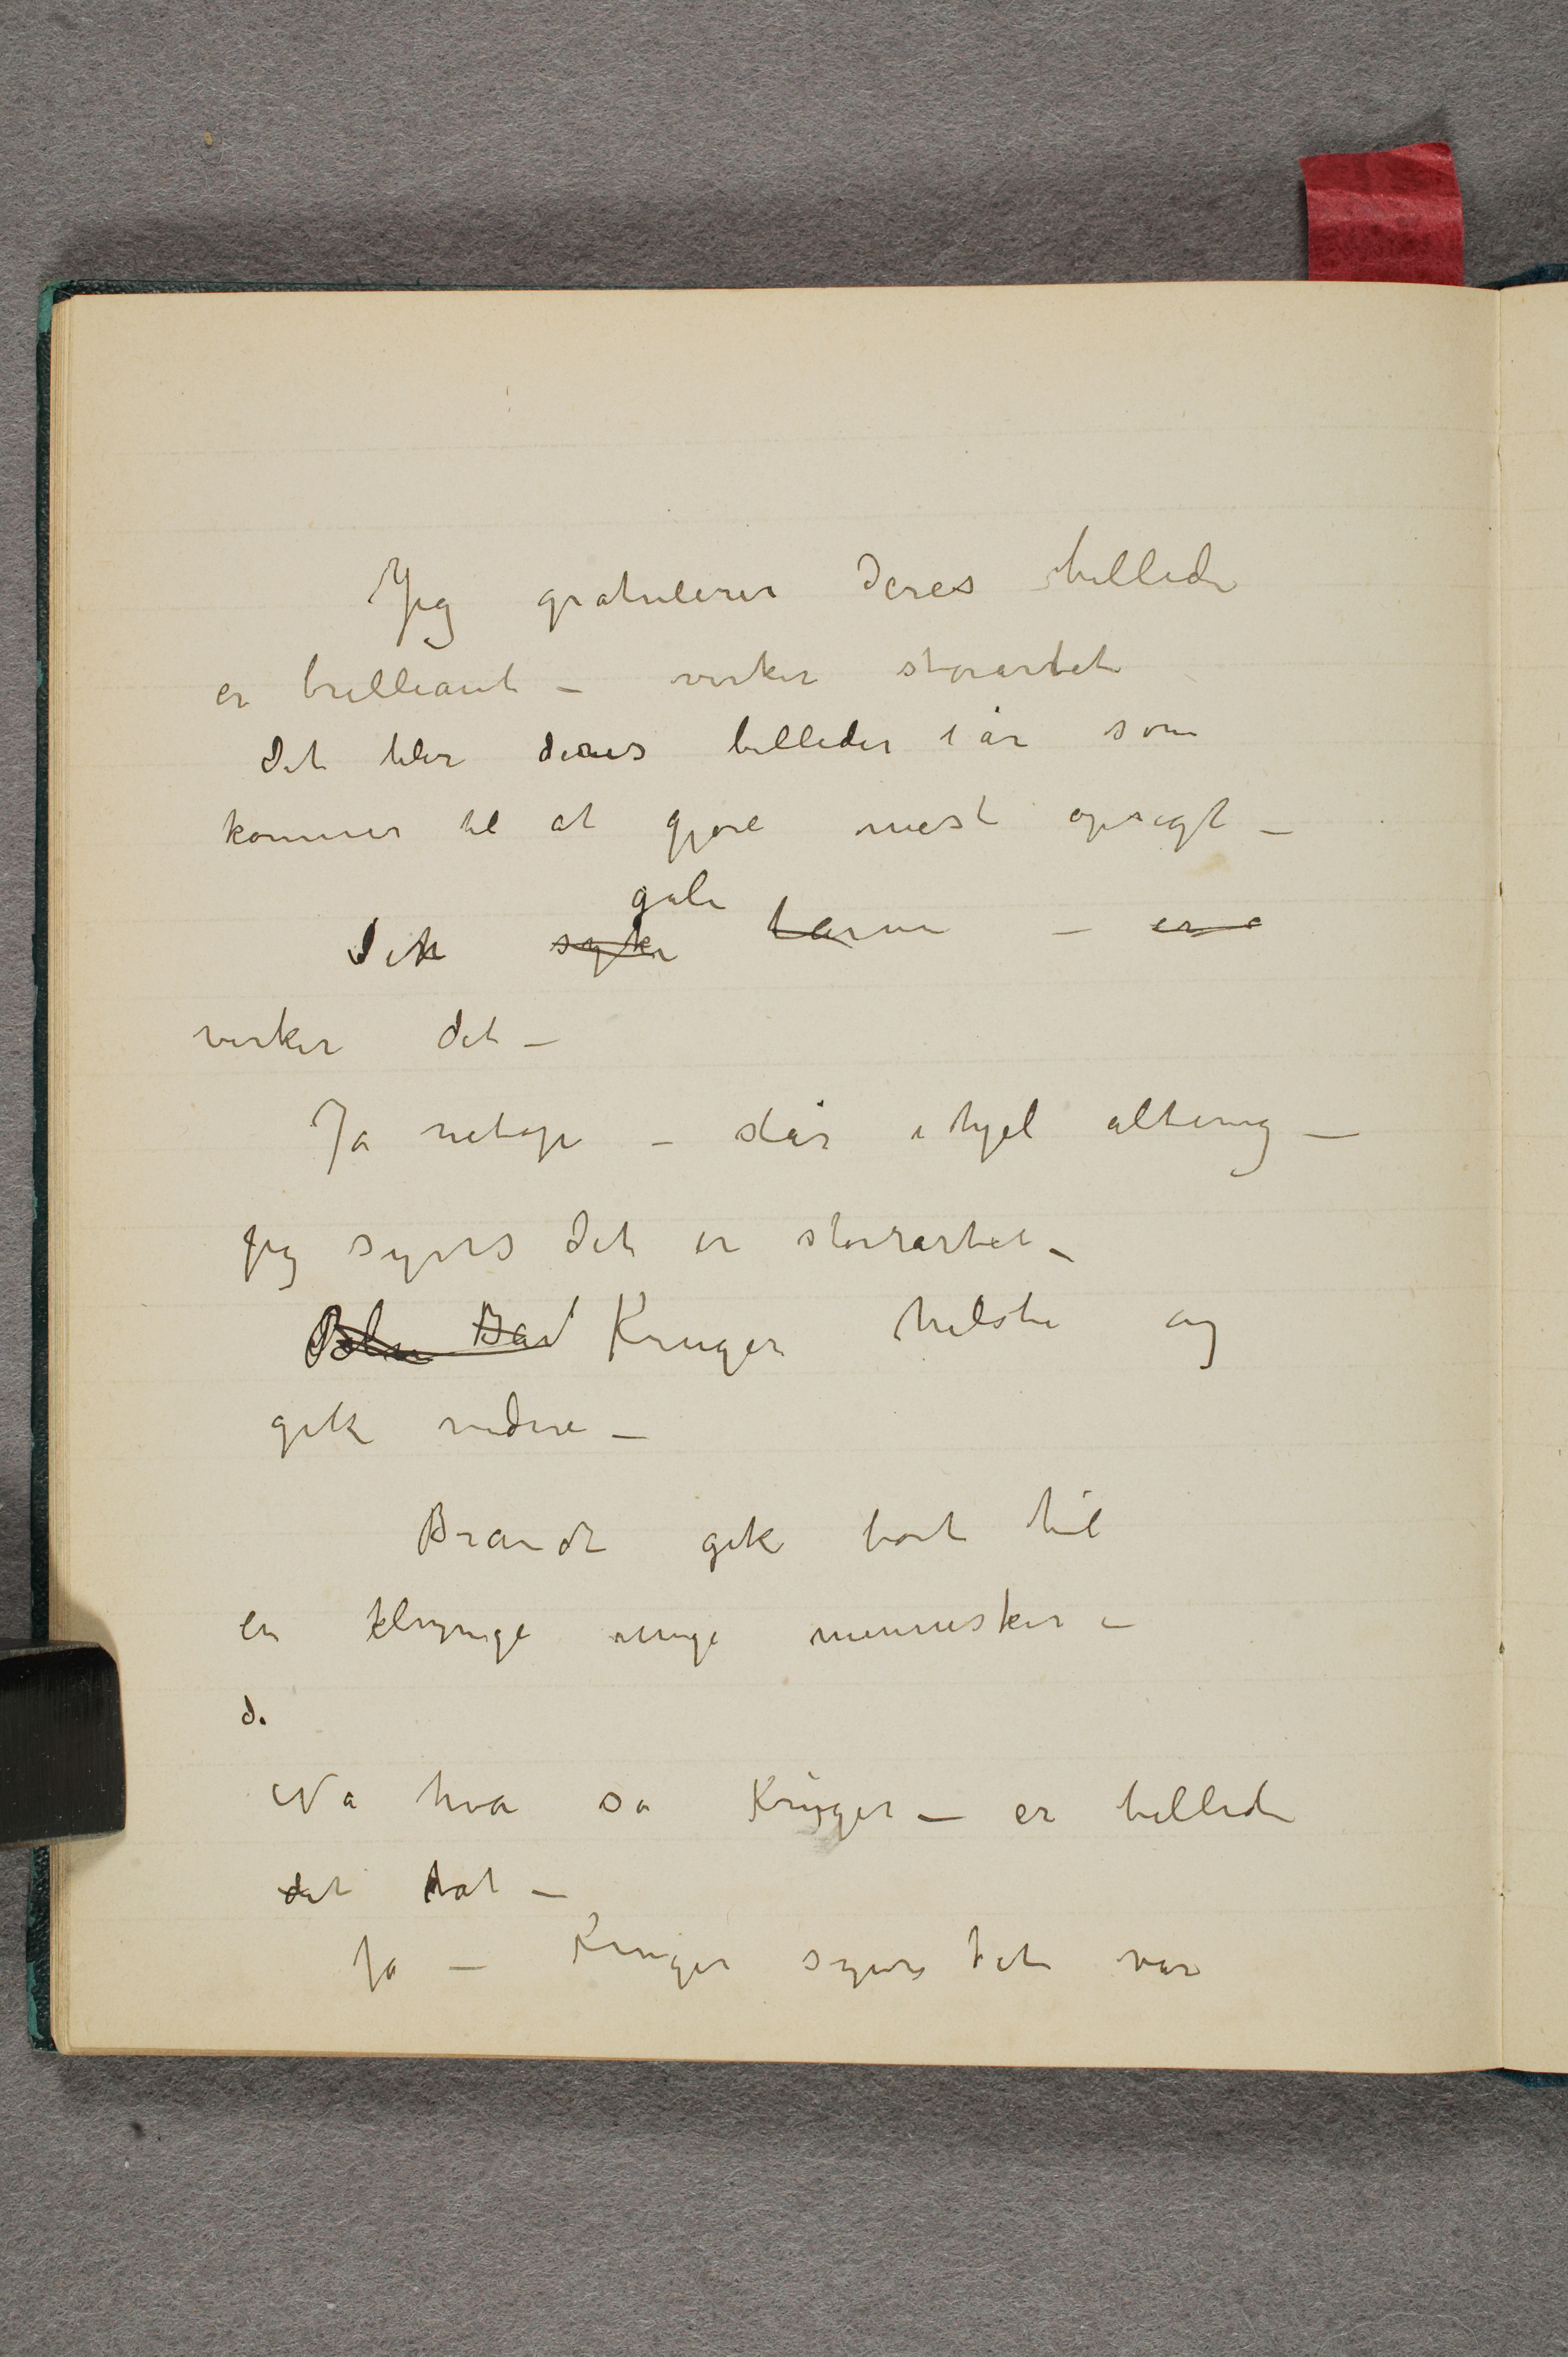 Jeg gratulerer Deres billede
er brilliant – virker storartet
Det blir deres billeder iår som
kommer til at gjøre mest opsigt –
gale
Den syke barm – er
virker det –
Ja netop – slår ihjel alting –
jeg synes det er storrartet –
Krüger hilste og
gik videre –
Brandt gik bort til
en klynge unge mennesker –
d.
Nå hva sa Krüger – er billede
det hat –
Ja – Krüger synes det var